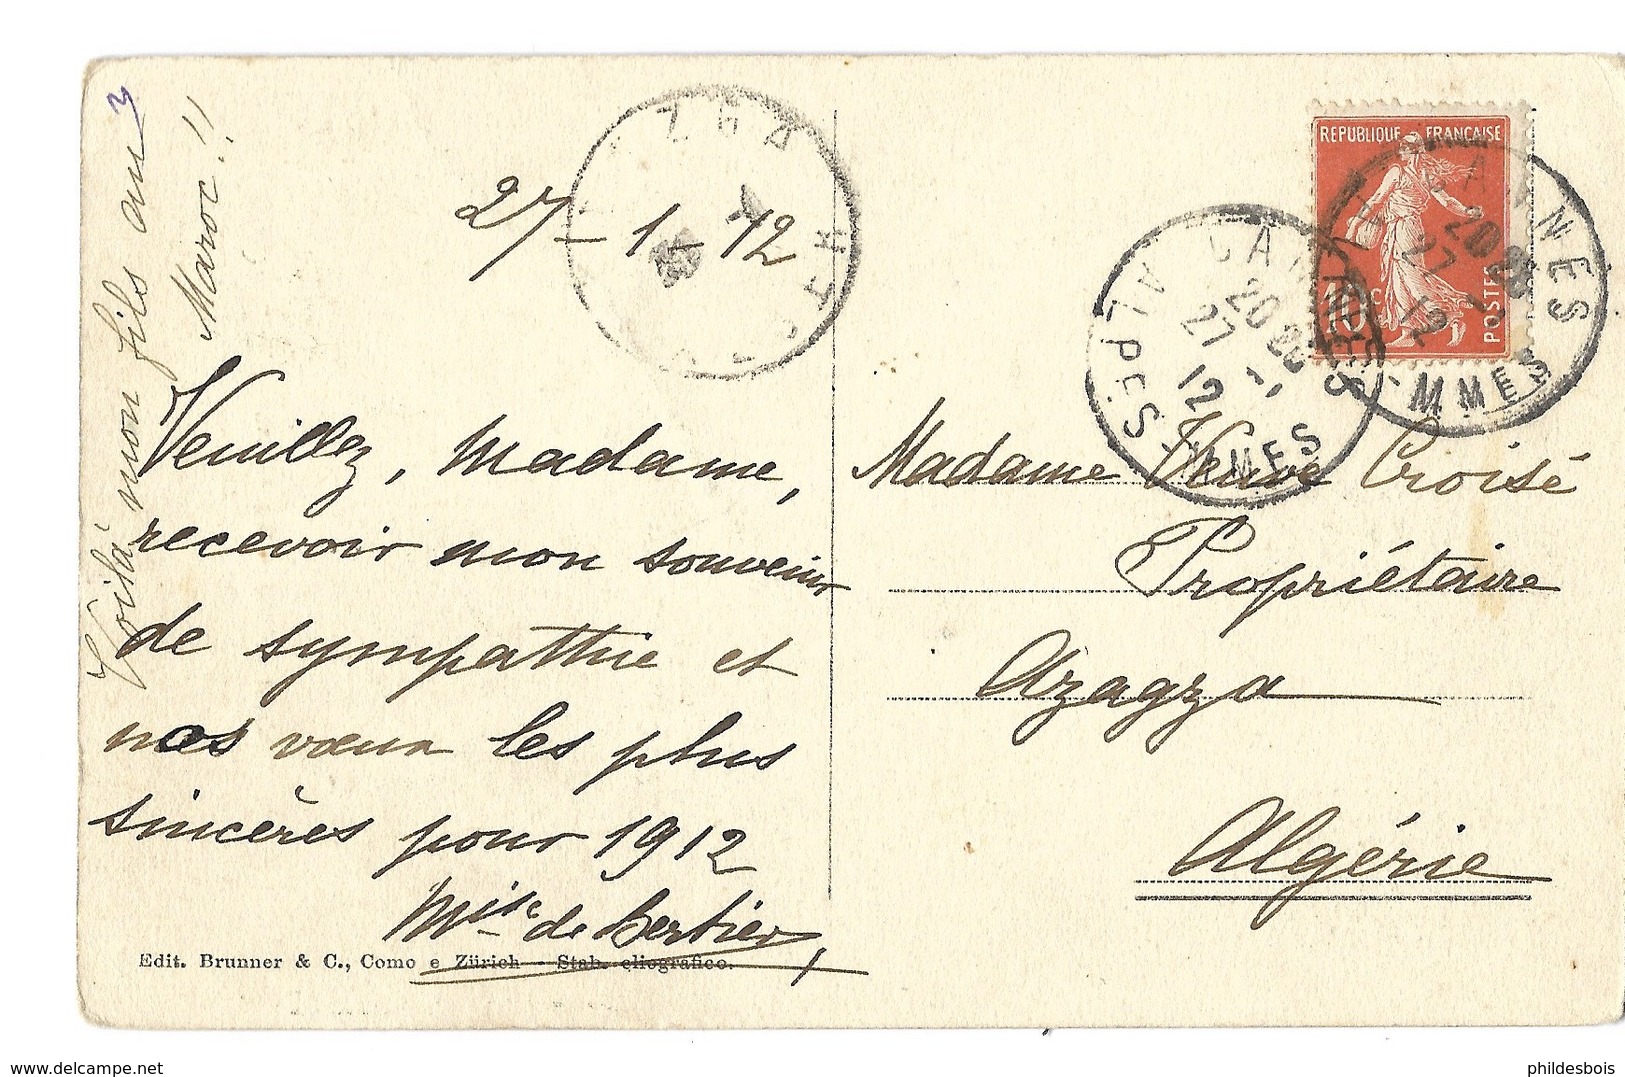 Voilà mon fils au
Maroc !!
27-1-12
Veuillez, Madame,
recevoir mon souvenir
de sympathie et
nos vœux les plus
sincères pour 1912
Mise de Bertier
Edit. Brunner & C., Como e Zürich - Stab. eliografico.
REPUBLIQUE FRANÇAISE
10 c
POSTES
CANNES
20
27 - 1
12
ALPES MMES
CANNES
20
27 - 1
12
MMES
Madame Veuve Croisé
Propriétaire
Azagza
Algérie
www.delcampe.net
phildesbois